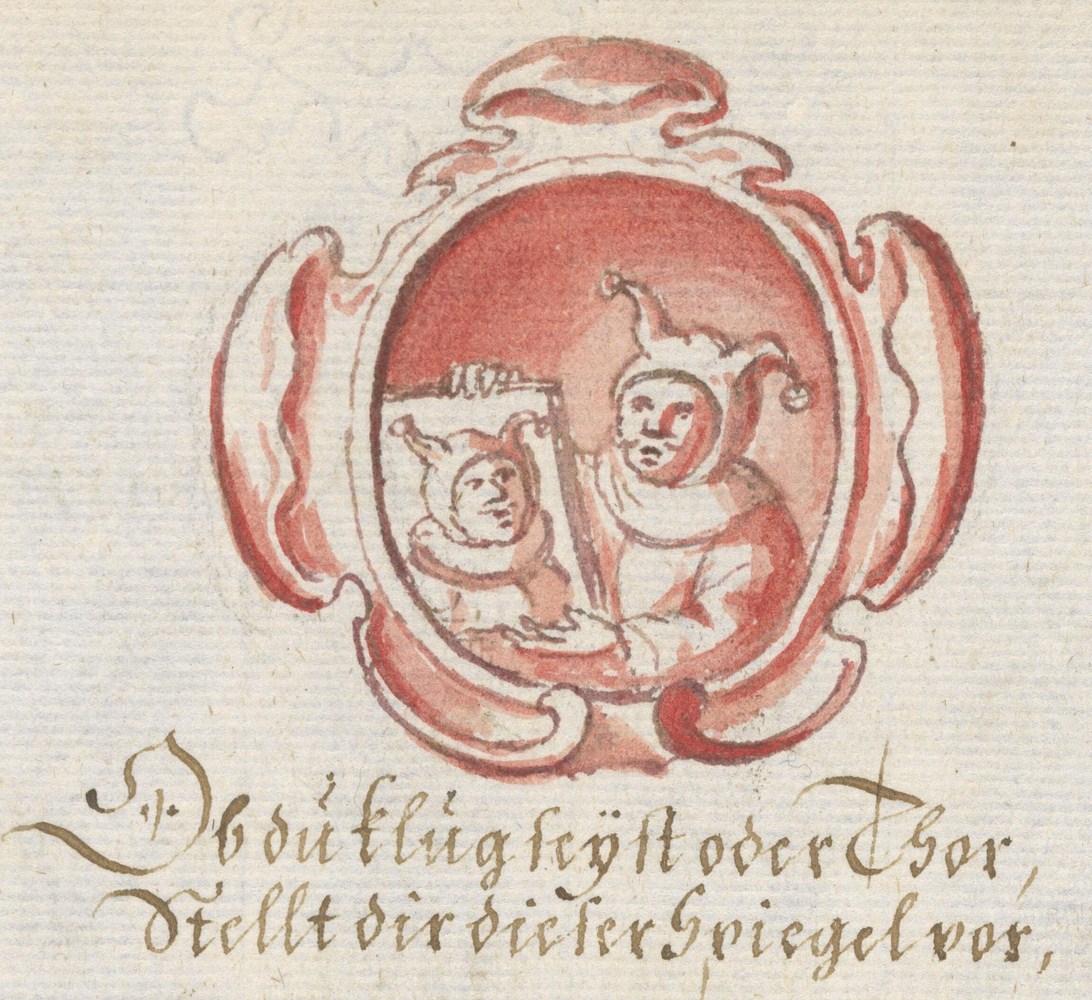 Ob du klug seÿst oder Thor,
Stellt dir dieser Spiegel vor,